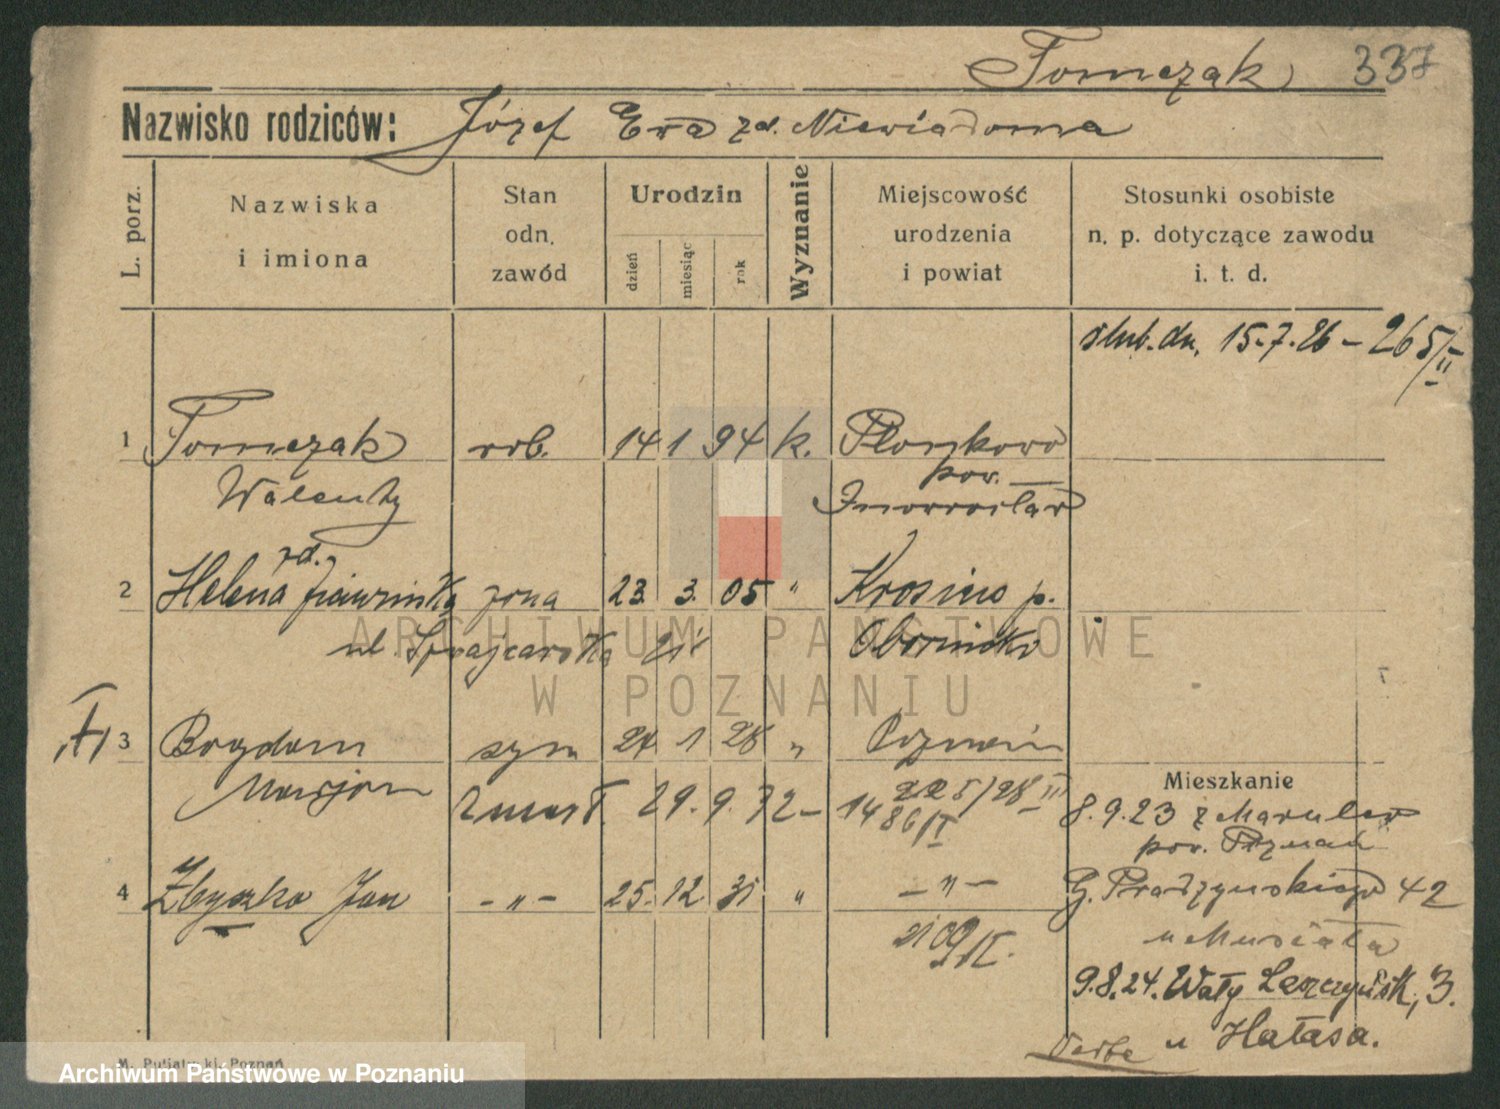 Tomczak 337
Nazwisko rodziców: Józef Ewa zd. Niewiadoma
L. porz.
Nazwiska
i imiona
Stan
odn.
zawód
Urodzin
dzień
miesiąc
rok
Wyznanie
Miejscowość
urodzenia
i powiat
Stosunki osobiste
n. p. dotyczące zawodu
i. t. d.
ślub. dn. 15.7.26 - 265/II
1 Tomczak rob. 14 1 94 k. Płonkowo
Walenty pow. Inowrocław
zd.
2 Helena żona 23. 3. 05 " Krosino p.
ul. Szwajcarska 21 Obornicki
3 Bogdan syn 24 1 28 " Poznań
Marjan 225/28 II
zmarł. 29. 9. 32 - 1486/I
Mieszkanie
8.9.23 z
pow. Poznań
4 Zbyszko Jan - " - 25. 12 31 " - " -
G. Prądzyńskiego 42
u Musiała
2109/II.
9.8.24. Wały Leszczyńsk. 3.
u Hałasa.
ARCHIWUM PAŃSTWOWE
W POZNANIU
Archiwum Państwowe w Poznaniu